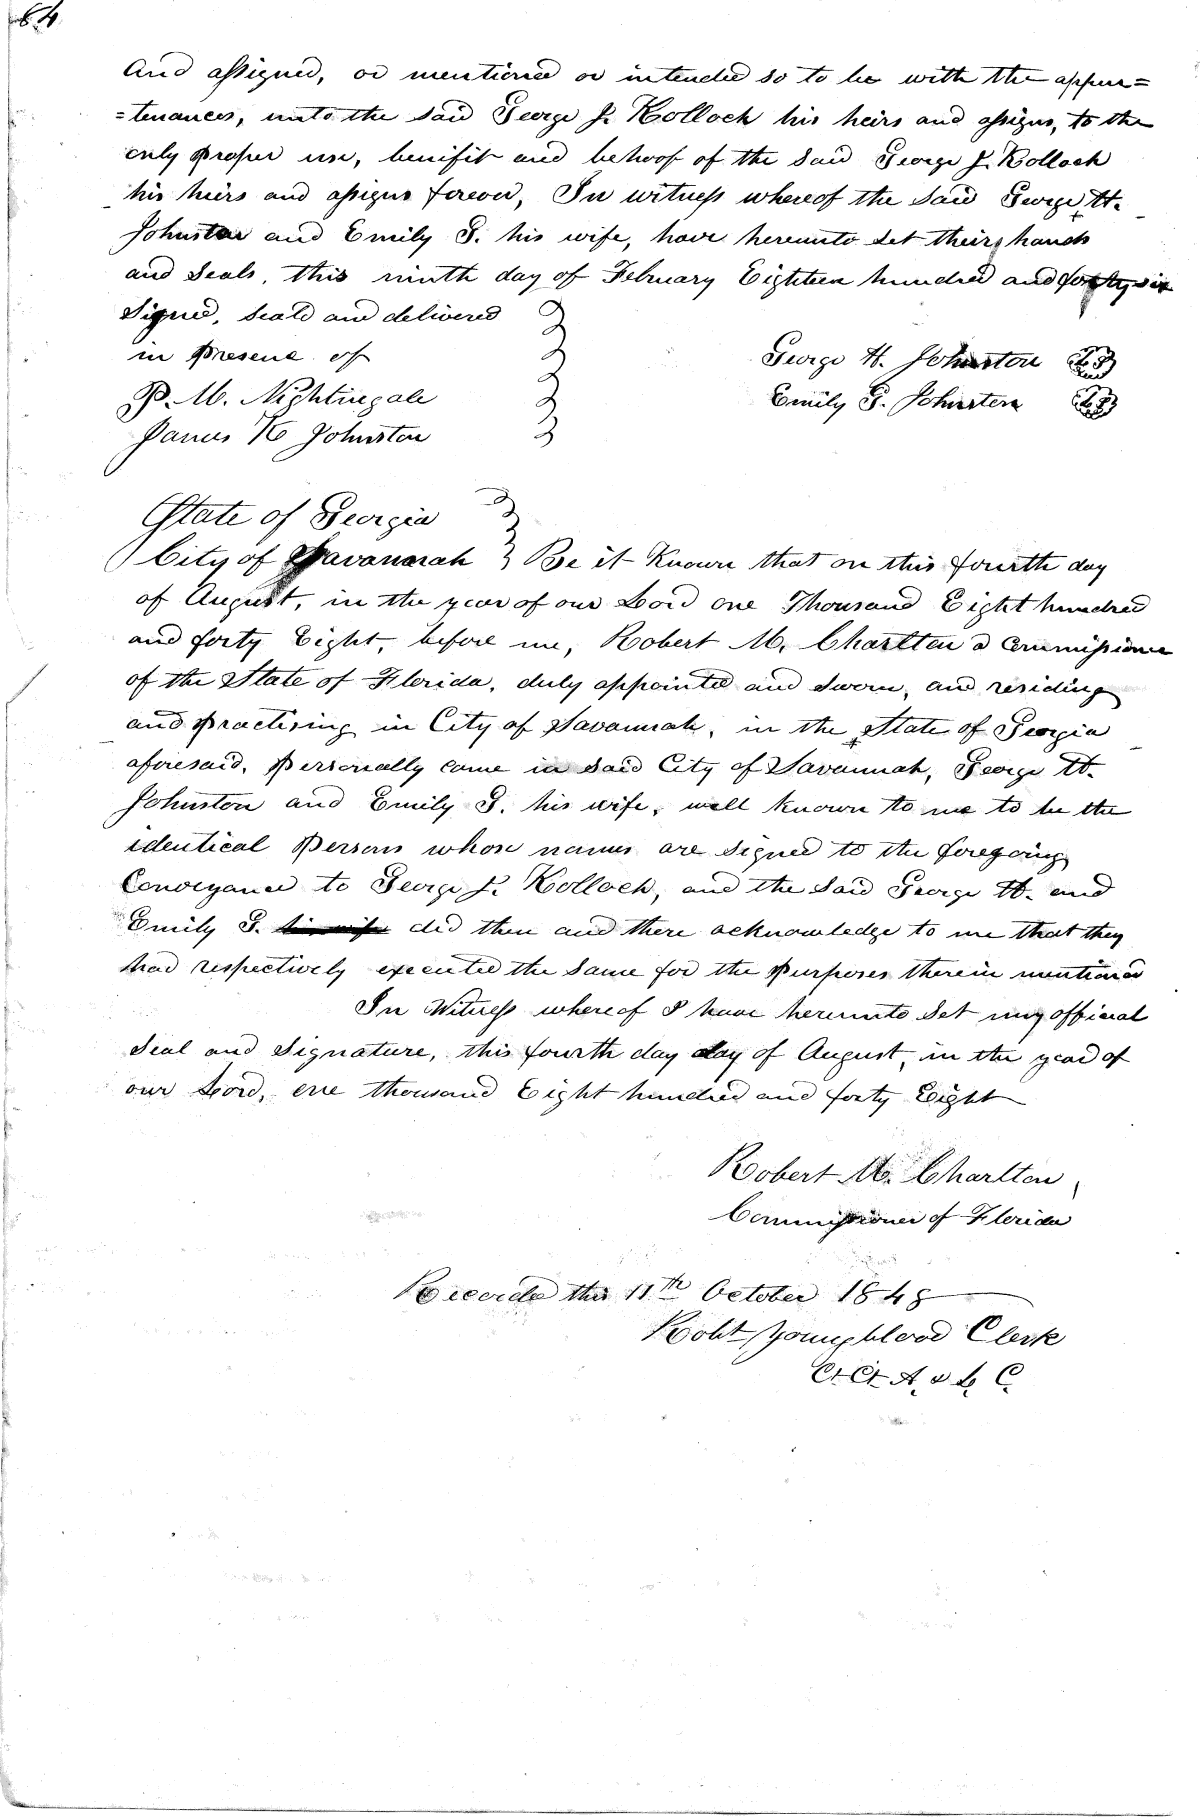 64
And assigned, or mentioned or intended so to be with the appur=
=tenances, unto the said George J. Kollock his heirs and assigns, to the
only proper use, benifit and behoof of the said George J. Kollock
his heirs and assigns forever, In witness whereof the said George H.
Johnston and Emily G. his wife, have hereunto set their hands
and seals, this ninth day of February Eighteen hundred and forty six
Signed, seald and delivered
in presence of
George H. Johnston L.S.
P. M. Nightingale
Emily G. Johnston L.S.
James K Johnston
State of Georgia
City of Savannah } Be it Known that on this fourth day
of August, in the year of our Lord one Thousand Eight hundred
and forty Eight, before me, Robert M. Charlton a Commissioner
of the State of Florida, duly appointed and sworn, and residing
and practising in City of Savannah, in the State of Georgia
aforesaid, personally came in said City of Savannah, George H.
Johnston and Emily G. his wife, well known to me to be the
identical persons whose names are signed to the foregoing
Conveyance to George J. Kollock, and the said George H. and
Emily G. his wife did then and there acknowledge to me that they
had respectively executed the same for the purposes therein mentioned
In Witness whereof I have hereunto set my official
Seal and Signature, this fourth day day of August, in the year of
our Lord, one thousand Eight hundred and forty Eight
Robert M. Charlton
Commissioner of Florida
Recorded this 11th October 1848
Robt Youngblood Clerk
Ct Ct A. & L. C.